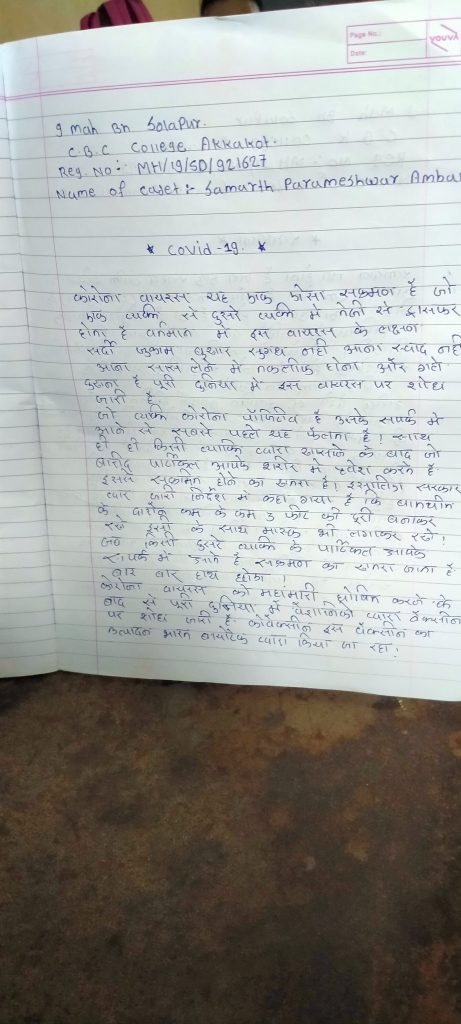 Page No.:
Date:
YOUVA
9 mah Bn Solapur.
C.B.C College Akkalkot.
Reg. No:- MH/19/SD/921627
Name of cadet:- Samarth Parameshwar Ambar
* Covid-19. *
कोरोना वायरस यह एक ऐसा सक्रमण है जो
एक व्यक्ति से दुसरे व्यक्ति मे तेजी से ट्रासफर
होता है वर्तमान मे इस वायरस के लक्षण
सर्दी जुकाम बुखार सुगंध नही आना स्वाद नही
आना सास लेने मे तकलीफ होना और गले
दुखना है पुरी दुनिया मे इस वायरस पर शोध
जारी है.
जो व्यक्ति कोरोना पॉजिटिव है उसके सपर्क मे
आने से सबसे पहले यह फैलता है! साथ
ही ही किसी व्यक्ति व्दारा खासने के बाद जो
बारीद पार्टिकल आपके शरीर मे प्रवेश करते है
इससे सक्रमित होने का खतरा है। इसलिए सरकार
व्दार जारी निर्देश मे कहा गया है कि बातचीत
के दारौन कम के कम 3 फीट की दुरी बनाकर
रखे इसी के साथ मास्क भी लगाकर रखे!
जब किसी दुसरे व्यक्ति के पार्टिकल आपके
सपर्क मे आते है सक्रमण का खतरा जाता है
बार बार हाथ धोना!
कोरोना वायरस को महामारी घोषित करने के
बाद से पुरी दुनिया मे वैज्ञानिको व्दारा वैक्सीन
पर शोध जारी है. कोवैक्सीन इस वैक्सीन का
उत्पादन भारत बायोटेक व्दारा किया जा रहा!